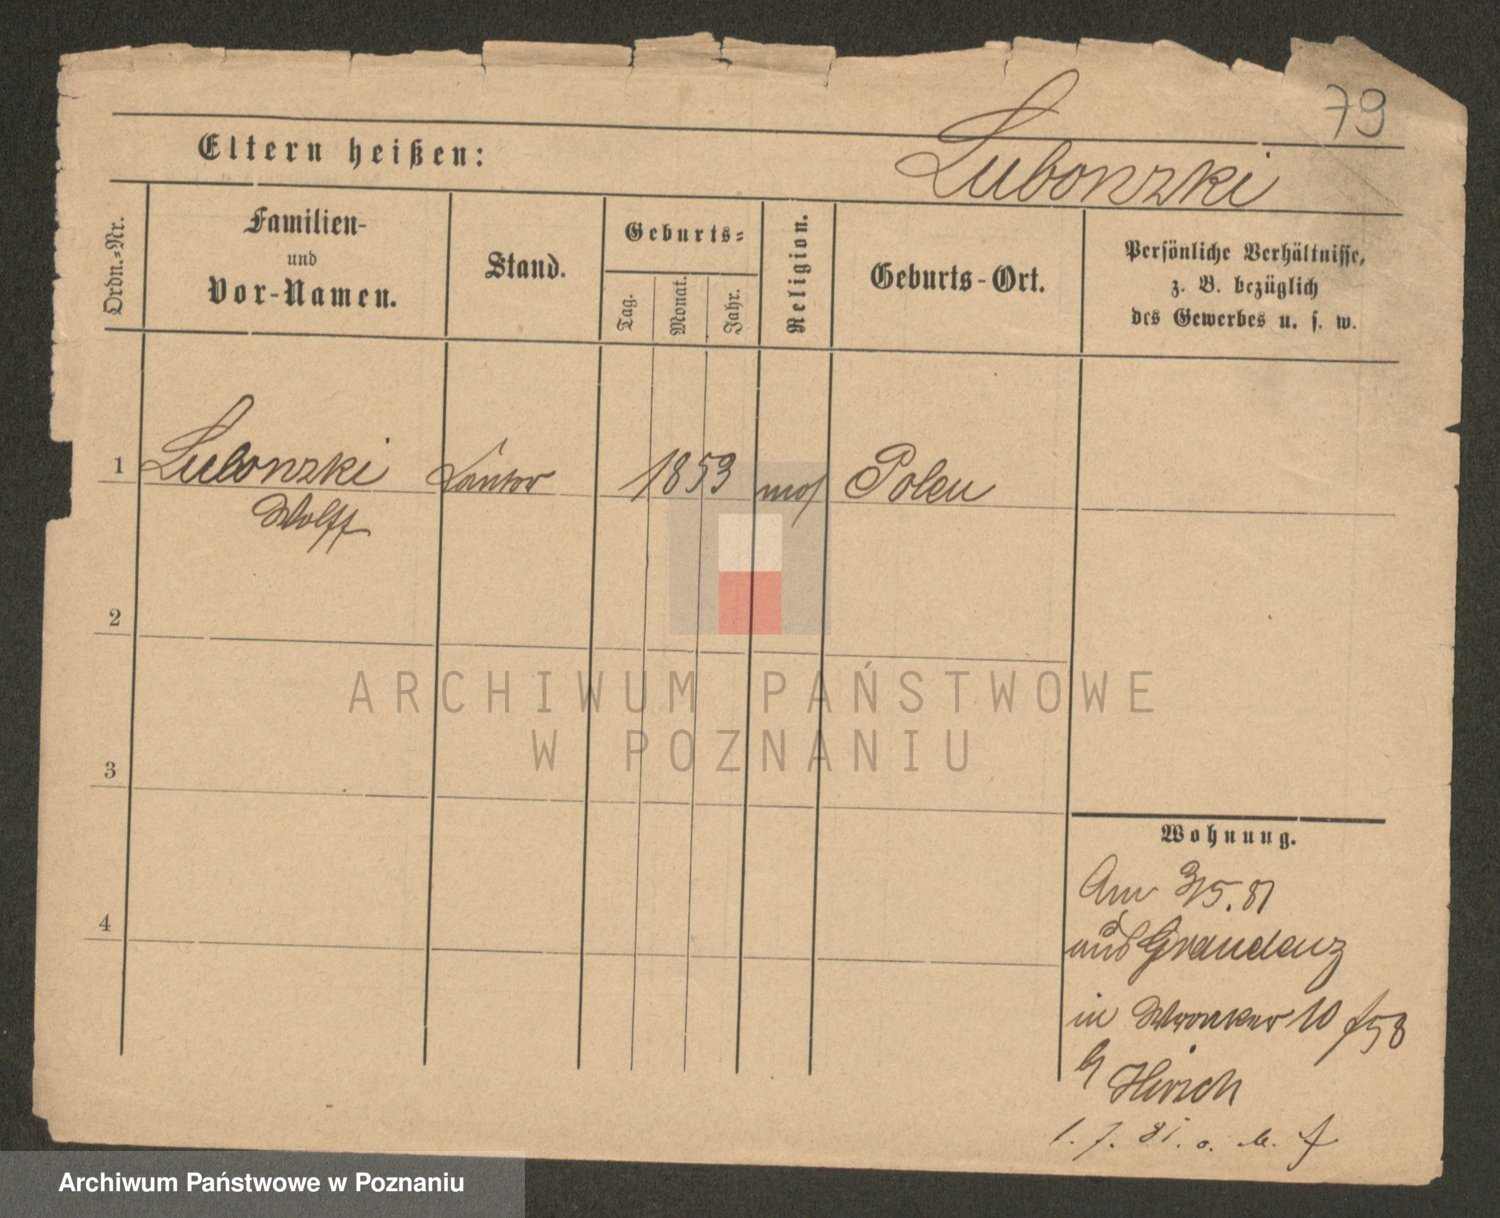 79
Eltern heißen:
Lubonzki
Ordn.-Nr.
Familien-
und
Vor-Namen.
Stand.
Geburts-
Tag.
Monat.
Jahr.
Religion.
Geburts-Ort.
Persönliche Verhältnisse,
z. B. bezüglich
des Gewerbes u. s. w.
1 Lubonzki Cantor 1853 mos Polen
Wolff
2
3
4
ARCHIWUM PAŃSTWOWE
W POZNANIU
Wohnung.
Am 3/5.81
aus Graudenz
in Wronker 10
Hirsch
1. 7. 81.
Archiwum Państwowe w Poznaniu